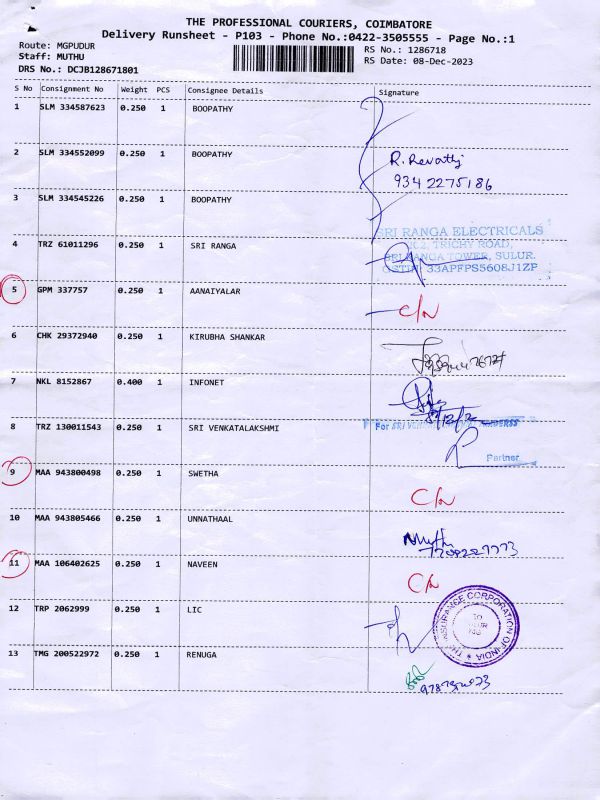 THE PROFESSIONAL COURIERS, COIMBATORE
Delivery Runsheet - P103 - Phone No.:0422-3505555 - Page No.:1
Route: MGPUDUR
RS No.: 1286718
Staff: MUTHU
RS Date: 08-Dec-2023
DRS No.: DCJB128671801
S No Consignment No Weight PCS Consignee Details Signature
1 SLM 334587623 0.250 1 BOOPATHY
2 SLM 334552099 0.250 1 BOOPATHY R. Revathy
9342275186
3 SLM 334545226 0.250 1 BOOPATHY
SRI RANGA ELECTRICALS
4 TRZ 61011296 0.250 1 SRI RANGA TRICHY ROAD,
SRI RANGA TOWER, SULUR.
GSTIN: 33APFPS5608J1ZP
5 GPM 337757 0.250 1 AANAIYALAR C/N
6 CHK 29372940 0.250 1 KIRUBHA SHANKAR
7 NKL 8152867 0.400 1 INFONET
8 TRZ 130011543 0.250 1 SRI VENKATALAKSHMI For SRI
Partner
9 MAA 943800498 0.250 1 SWETHA C/N
10 MAA 943805466 0.250 1 UNNATHAAL
11 MAA 106402625 0.250 1 NAVEEN C/N
12 TRP 2062999 0.250 1 LIC INSURANCE CORPORATION OF INDIA
13 TMG 200522972 0.250 1 RENUGA